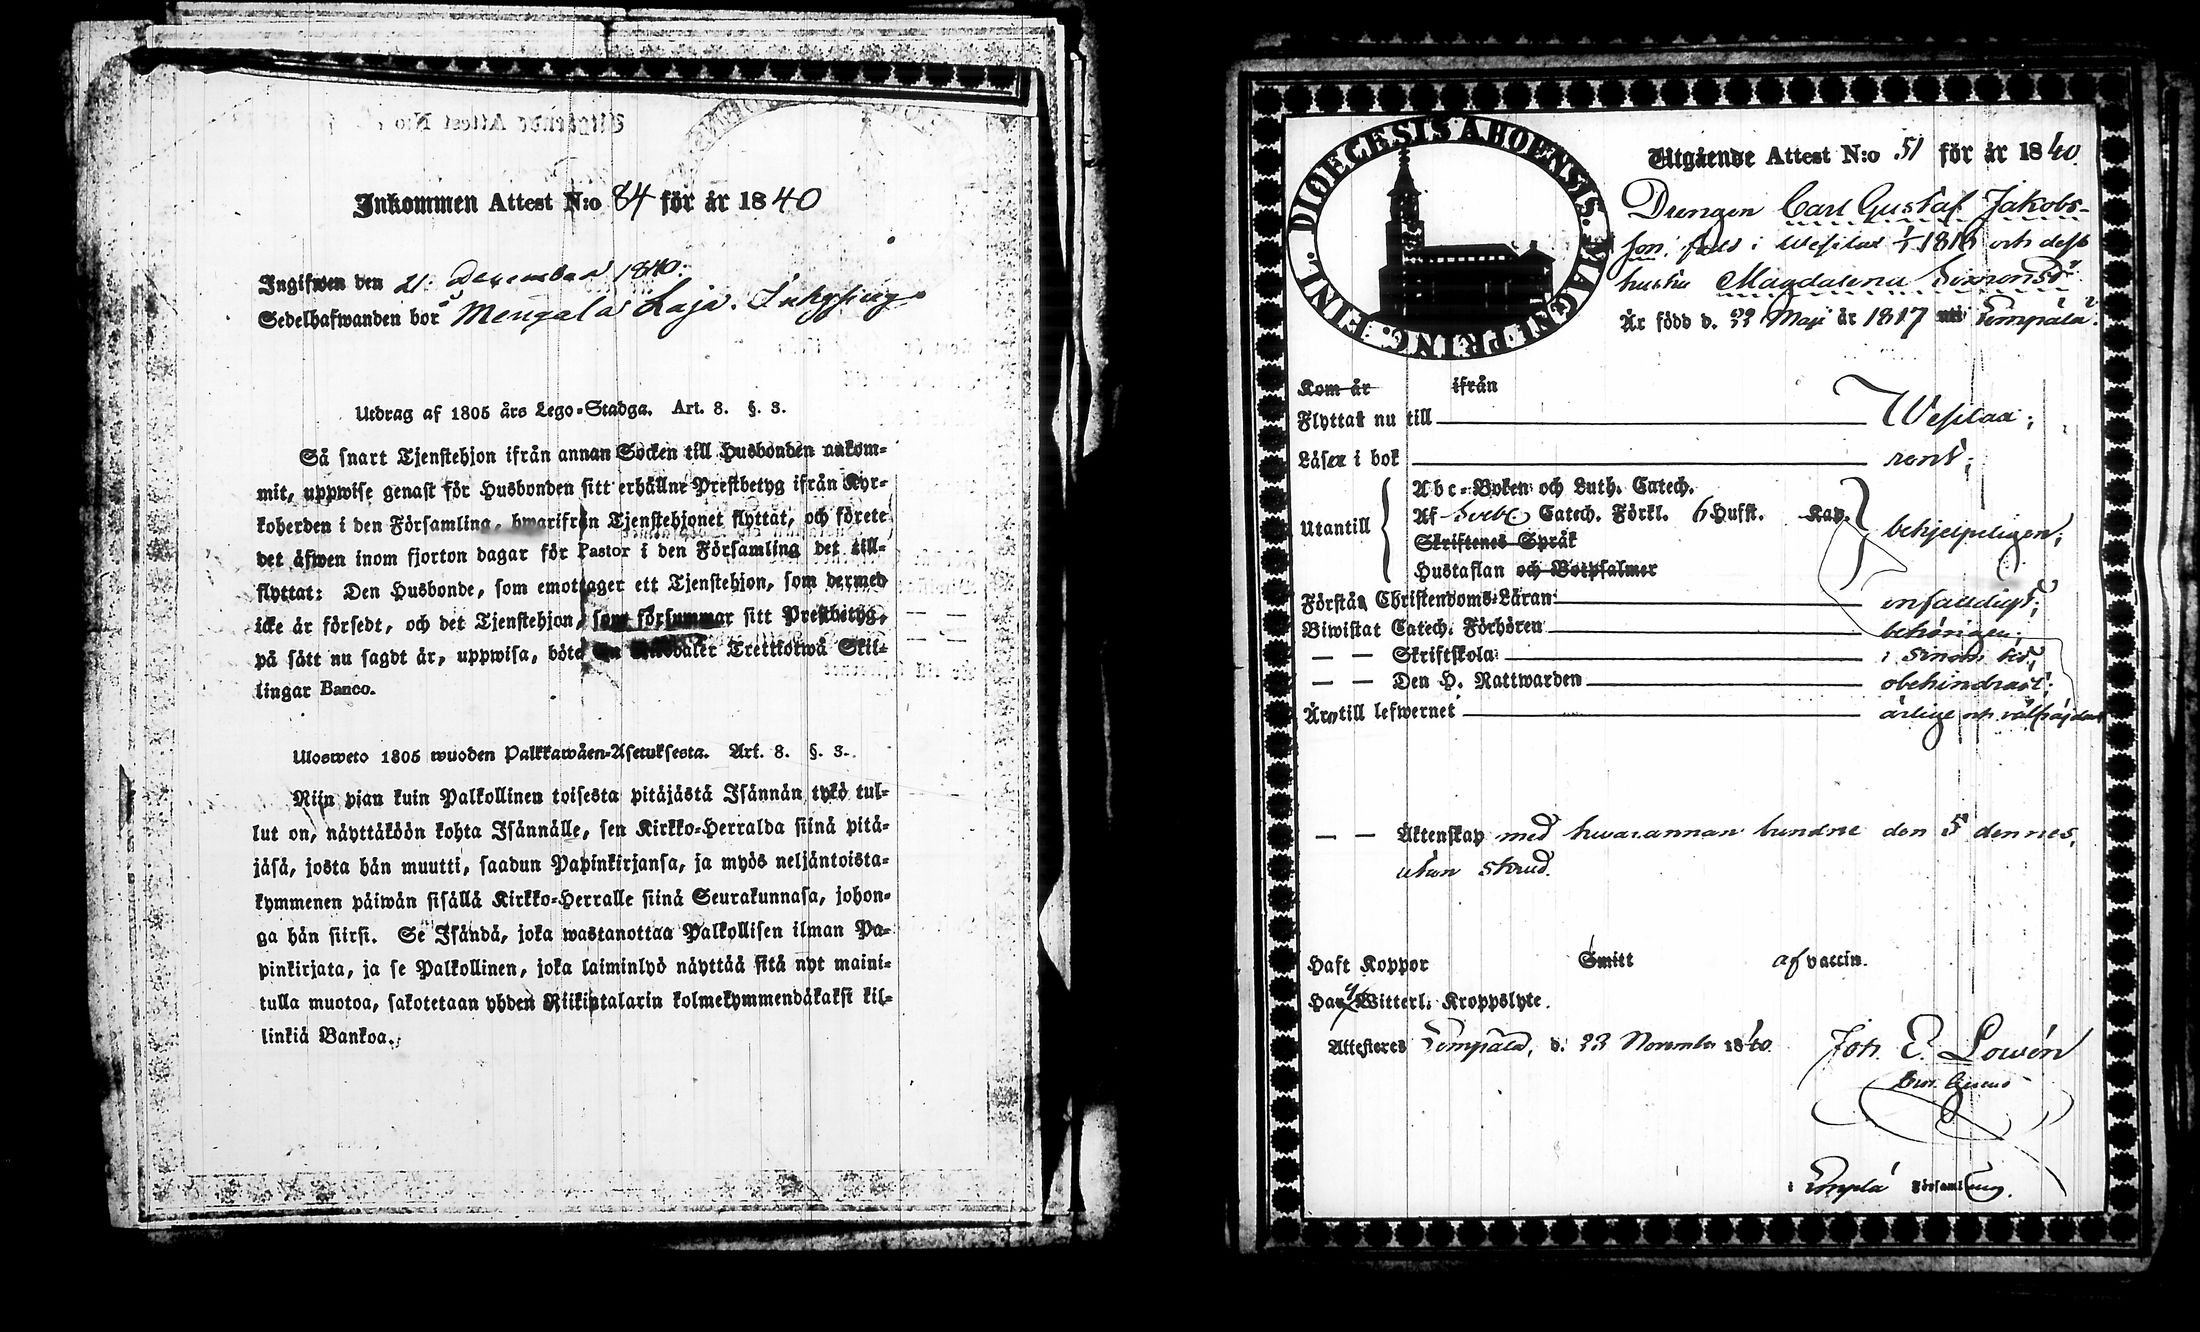 Inkommen Attest N:o 84 för år 1840
Ingifwen den 21 December 1840.
Sedelhafwanden bor å Mengala Laja.
Utdrag af 1805 års Lego-Stadga. Art. 8. §. 3.
Så snart Tjenstehjon ifrån annan Socken till Husbonden ankom-
mit, uppwise genast för Husbonden sitt erhållne Prestbetyg ifrån Kyr-
koherden i den Församling, hwarifrån Tjenstehjonet flyttat, och förete
det äfwen inom fjorton dagar för Pastor i den Församling det till-
flyttat: Den Husbonde, som emottager ett Tjenstehjon, som dermed
icke är försedt, och det Tjenstehjon, som försummar sitt Prestbetyg,
på sätt nu sagdt är, uppwisa, böte en Riksdaler Trettiotwå Skil-
lingar Banco.
Ulosweto 1805 wuoden Palkkawäen-Asetuksesta. Art. 8. §. 3.
Niin pian kuin Palkollinen toisesta pitäjästä Isännän tykö tul-
lut on, näyttäköön kohta Isännälle, sen Kirkko-Herralda siinä pitä-
jäsä, josta hän muutti, saadun Papinkirjansa, ja myös neljäntoista-
kymmenen päiwän sisällä Kirkko-Herralle siinä Seurakunnasa, johon-
ga hän siirsi. Se Isändä, joka wastanottaa Palkollisen ilman Pa-
pinkirjata, ja se Palkollinen, joka laiminlyö näyttää sitä nyt maini-
tulla muotoa, sakotetaan yhden Riikintalarin kolmekymmendäkaksi kil-
linkiä Bankoa.
DIOECESIS ABOENSIS. MAGNI PRINC. FINL.
Utgående Attest N:o 51 för år 1840.
Drengen Carl Gustaf Jakobs-
son, född i Wesilax 1/1 1816 och dess
hustru Magdalena Simonsdr
Är född d. 22 Maji år 1817 Lempälä.
Kom år ifrån
Flyttar nu till Wesilax;
Läser i bok rent;
Abc-Boken och Luth. Catech.
Utantill Af Sveb. Catech. Förkl. 6 Hufst. Kap. behjelpeligen;
Skriftenes Språk
Hustaflan och Botpsalmer
Förstår Christendoms-Läran enfaldigt;
Biwistat Catech. Förhören behörigen;
— — Skriftskola i sinom tid;
— — Den H. Nattwarden obehindradt;
Äro till lefwernet ärlige och välfrägdade
— — Äktenskap med hwarannan bundne den 5 dennes,
utan skrud.
Haft Koppor Smitt af vaccin.
Har Witterl. Kroppslyte.
Attesteres Lempälä, d. 23 November 1840.
Joh. E. Lowén
i Lempälä Församling.